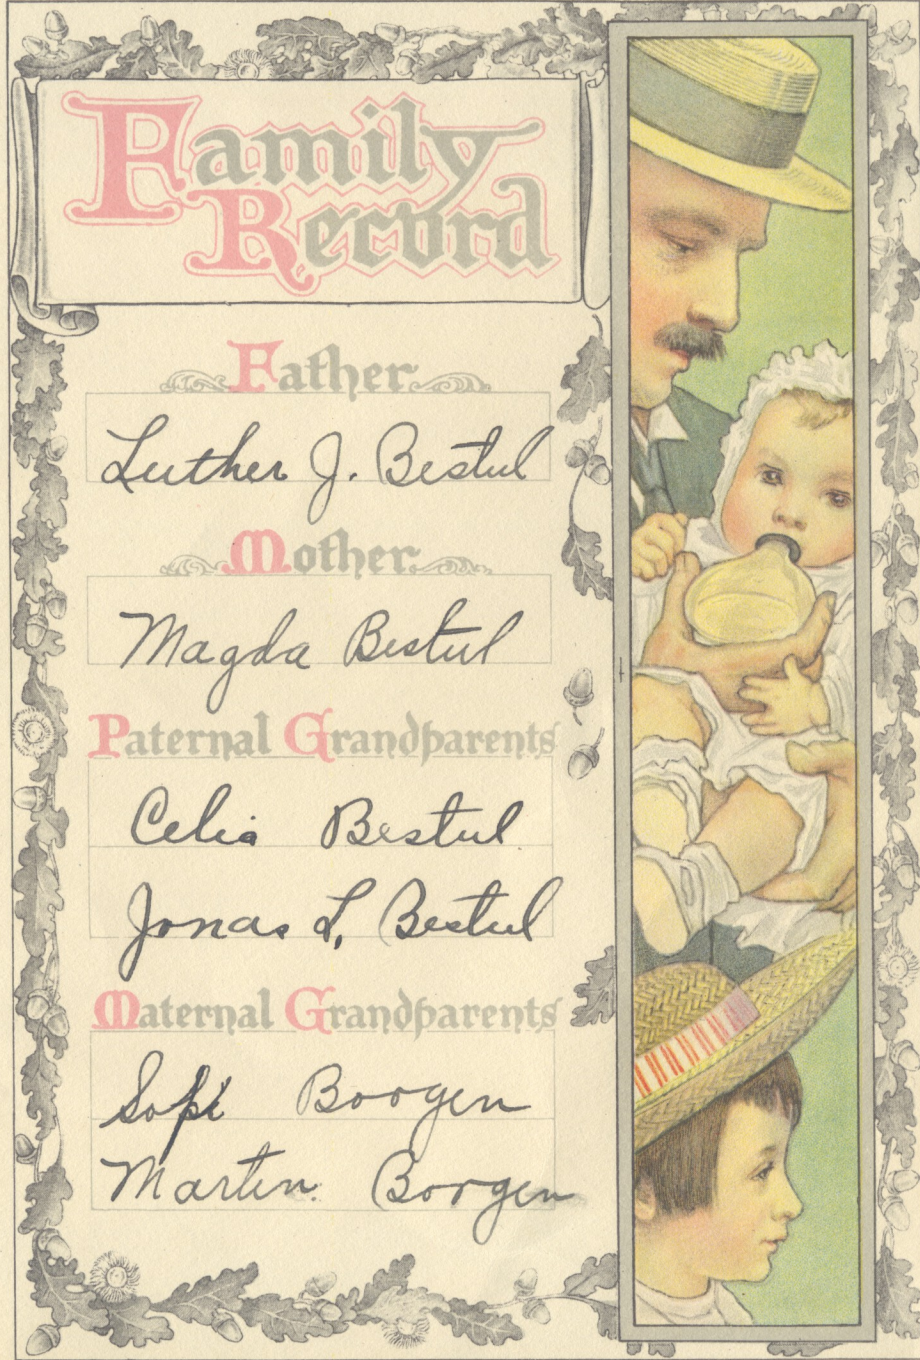 Family
Record
Father
Luther J. Bestul
Mother
Magda Bestul
Paternal Grandparents
Celia Bestul
Jonas L. Bestul
Maternal Grandparents
Sofi Boogen
Martin Boogen